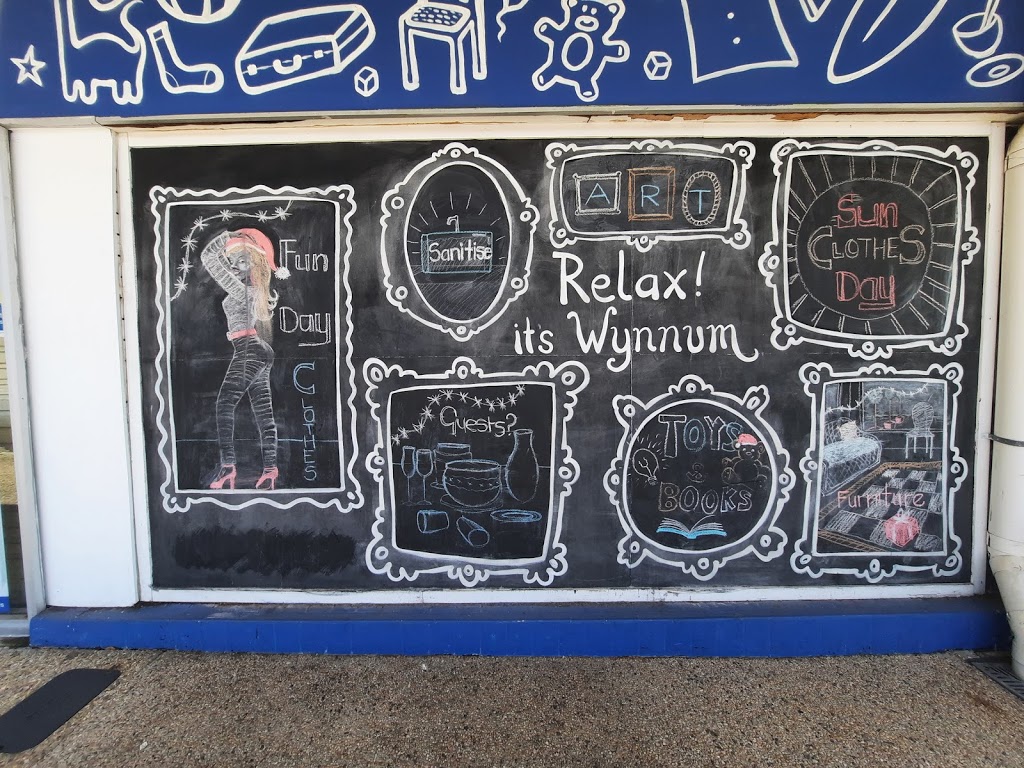 Fun
Day
Clothes
Sanitise
ART
Relax!
it's Wynnum
Sun
CLOTHES
Day
Guests?
TOYS
&
BOOKS
Furniture